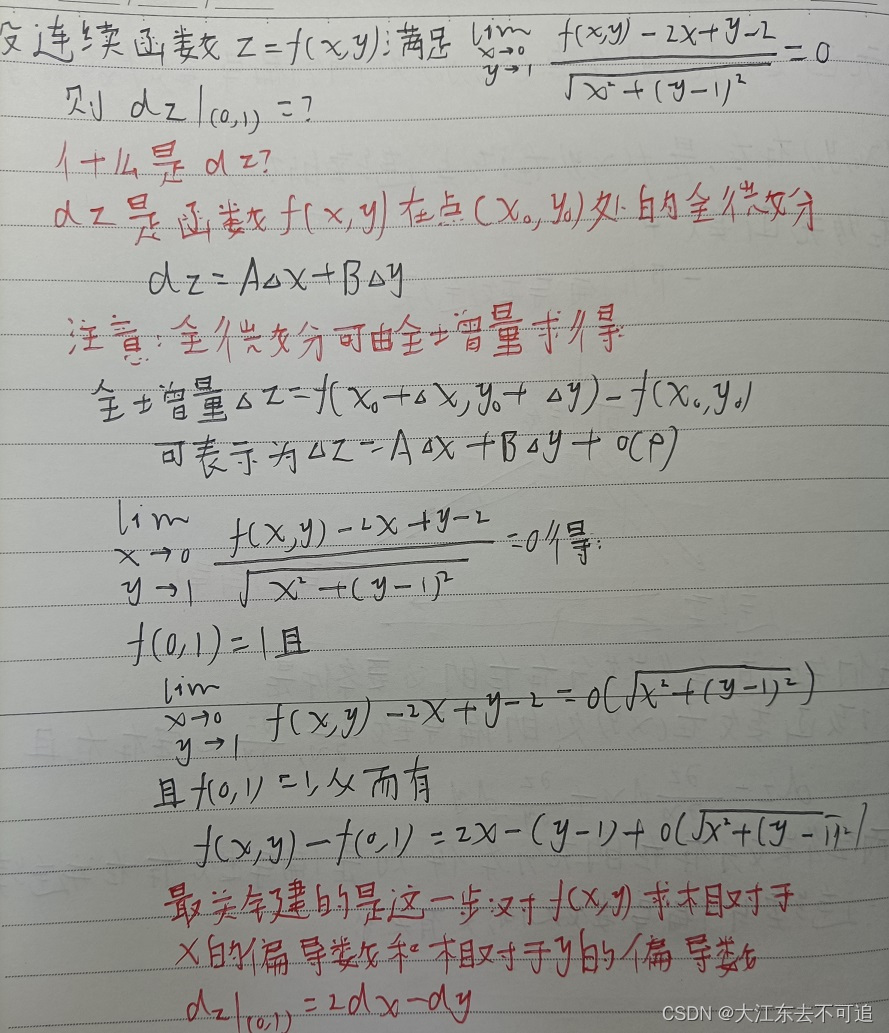 设连续函数 z=f(x,y)满足 lim x→0 y→1 f(x,y)-2x+y-2 / √x²+(y-1)² =0
则 dz|(0,1)=?
什么是dz?
dz是函数f(x,y)在点(x₀,y₀)处的全微分
dz=A△x+B△y
注意:全微分可由全增量求得
全增量△z=f(x₀+△x,y₀+△y)-f(x₀,y₀)
可表示为△z=A△x+B△y+o(ρ)
lim x→0 y→1 f(x,y)-2x+y-2 / √x²+(y-1)² =0得:
f(0,1)=1且
lim x→0 y→1 f(x,y)-2x+y-2=o(√x²+(y-1)²)
且f(0,1)=1,从而有
f(x,y)-f(0,1)=2x-(y-1)+o(√x²+(y-1)²)
最关键的是这一步:对f(x,y)求相对于
x的偏导数和相对于y的偏导数
dz|(0,1)=2dx-dy
CSDN @大江东去不可追